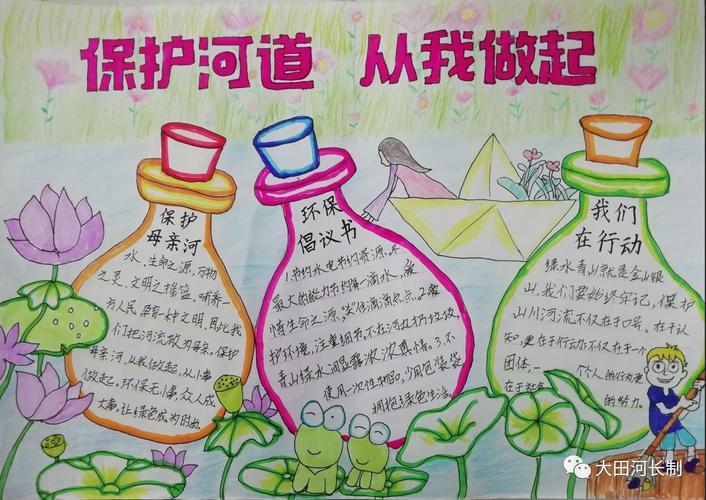 保护河道 从我做起
保护
母亲河
水,生命之源,万物
之灵,文明之摇篮,哺养一
方人民,孕育一种文明,因此我
们把河流敬为母亲,保护
母亲河,从我做起,从小事
做起,环保无小事,众人成
大事,让绿色成为时尚
环保
倡议书
1.节约水电节约资源,尽
最大的能力节约每一滴水,爱
惜生命之源,从滴滴点点.2.爱
护环境,注重细节,不在河边扔垃圾,
青山绿水间显露浓浓真情。3.不
使用一次性物品,少用包装袋
拥抱绿色生活。
我们
在行动
绿水青山就是金山银
山,我们要始终牢记,保护
山川河流不仅在于口号,在于认
知,更在于行动不仅在于一个
团体,一个人的行为更
在于
的努力。
大田河长制